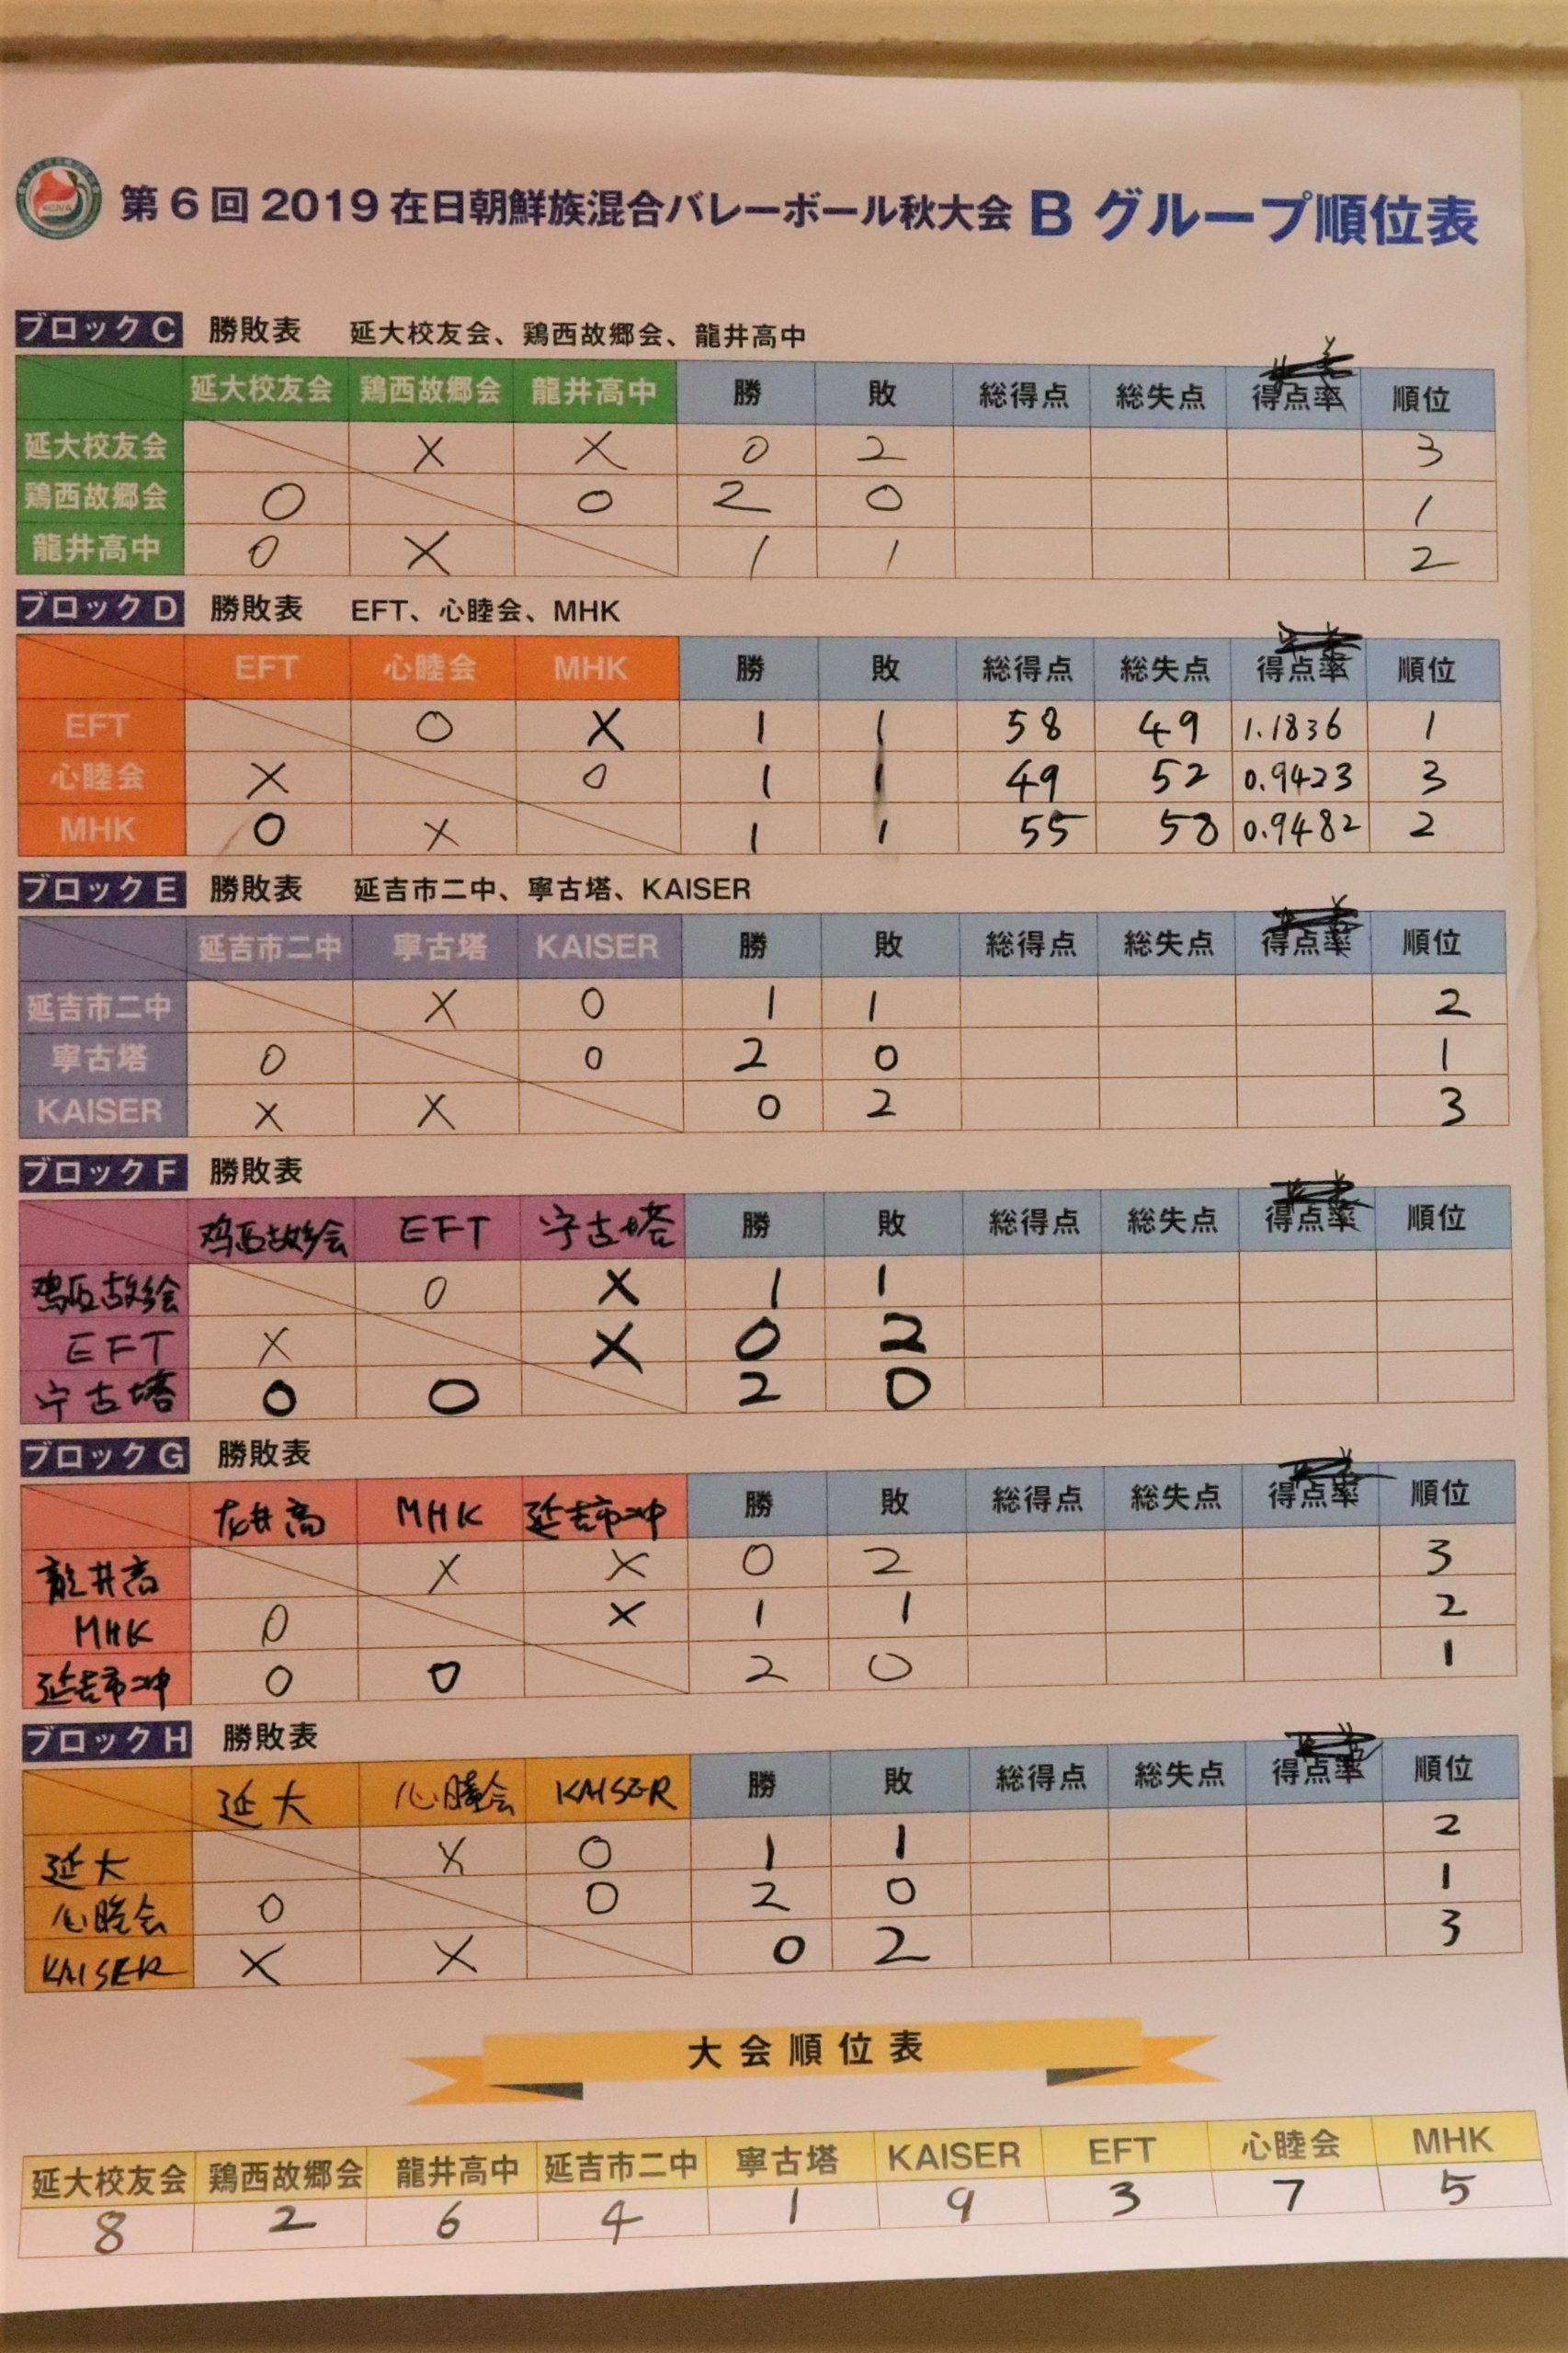 第6回2019在日朝鮮族混合バレーボール秋大会 B グループ順位表
ブロックC 勝敗表 延大校友会、鶏西故郷会、龍井高中
延大校友会 鶏西故郷会 龍井高中 勝 敗 総得点 総失点 得点率 順位
延大校友会 X X 0 2 3
鶏西故郷会 O O 2 0 1
龍井高中 O X 1 1 2
ブロックD 勝敗表 EFT、心睦会、MHK
EFT 心睦会 MHK 勝 敗 総得点 総失点 得点率 順位
EFT O X 1 1 58 49 1.1836 1
心睦会 X O 1 1 49 52 0.9423 3
MHK O X 1 1 55 58 0.9482 2
ブロックE 勝敗表 延吉市二中、寧古塔、KAISER
延吉市二中 寧古塔 KAISER 勝 敗 総得点 総失点 得点率 順位
延吉市二中 X O 1 1 2
寧古塔 O O 2 0 1
KAISER X X 0 2 3
ブロックF 勝敗表
鸡西故乡会 EFT 宁古塔 勝 敗 総得点 総失点 得点率 順位
鸡西故乡会 O X 1 1
EFT X X 0 2
宁古塔 O O 2 0
ブロックG 勝敗表
龙井高 MHK 延吉市二中 勝 敗 総得点 総失点 得点率 順位
龍井高 X X 0 2 3
MHK O X 1 1 2
延吉市二中 O O 2 0 1
ブロックH 勝敗表
延大 心睦会 KAISER 勝 敗 総得点 総失点 得点率 順位
延大 X O 1 1 2
心睦会 O O 2 0 1
KAISER X X 0 2 3
大会順位表
延大校友会 鶏西故郷会 龍井高中 延吉市二中 寧古塔 KAISER EFT 心睦会 MHK
8 2 6 4 1 9 3 7 5